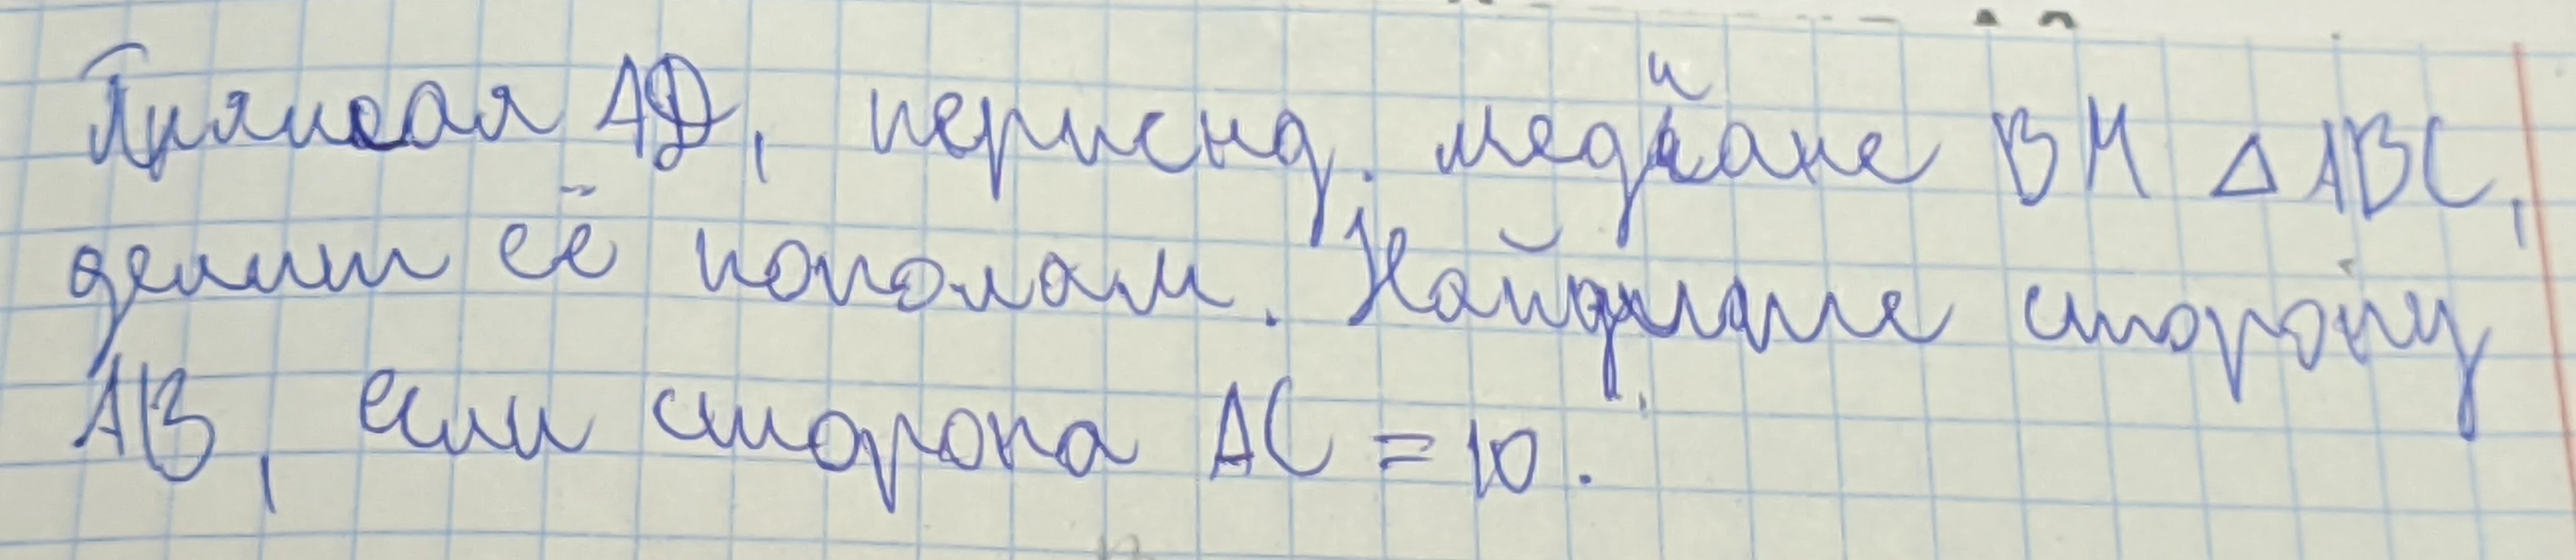 Прямая AD, перпенд. медиане BM △ ABC,
делит её пополам. Найдите сторону
AB, если сторона AC = 10.